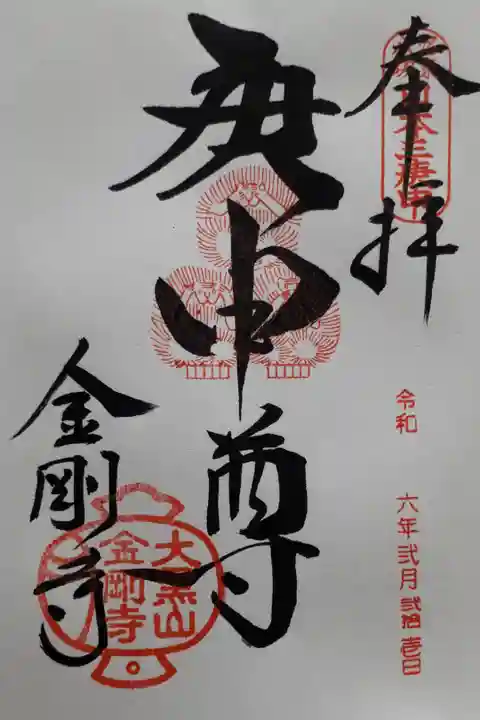 奉拝
日本三庚申
庚申尊
令和 六年弐月弐拾壱日
金剛寺
大黒山
金剛寺